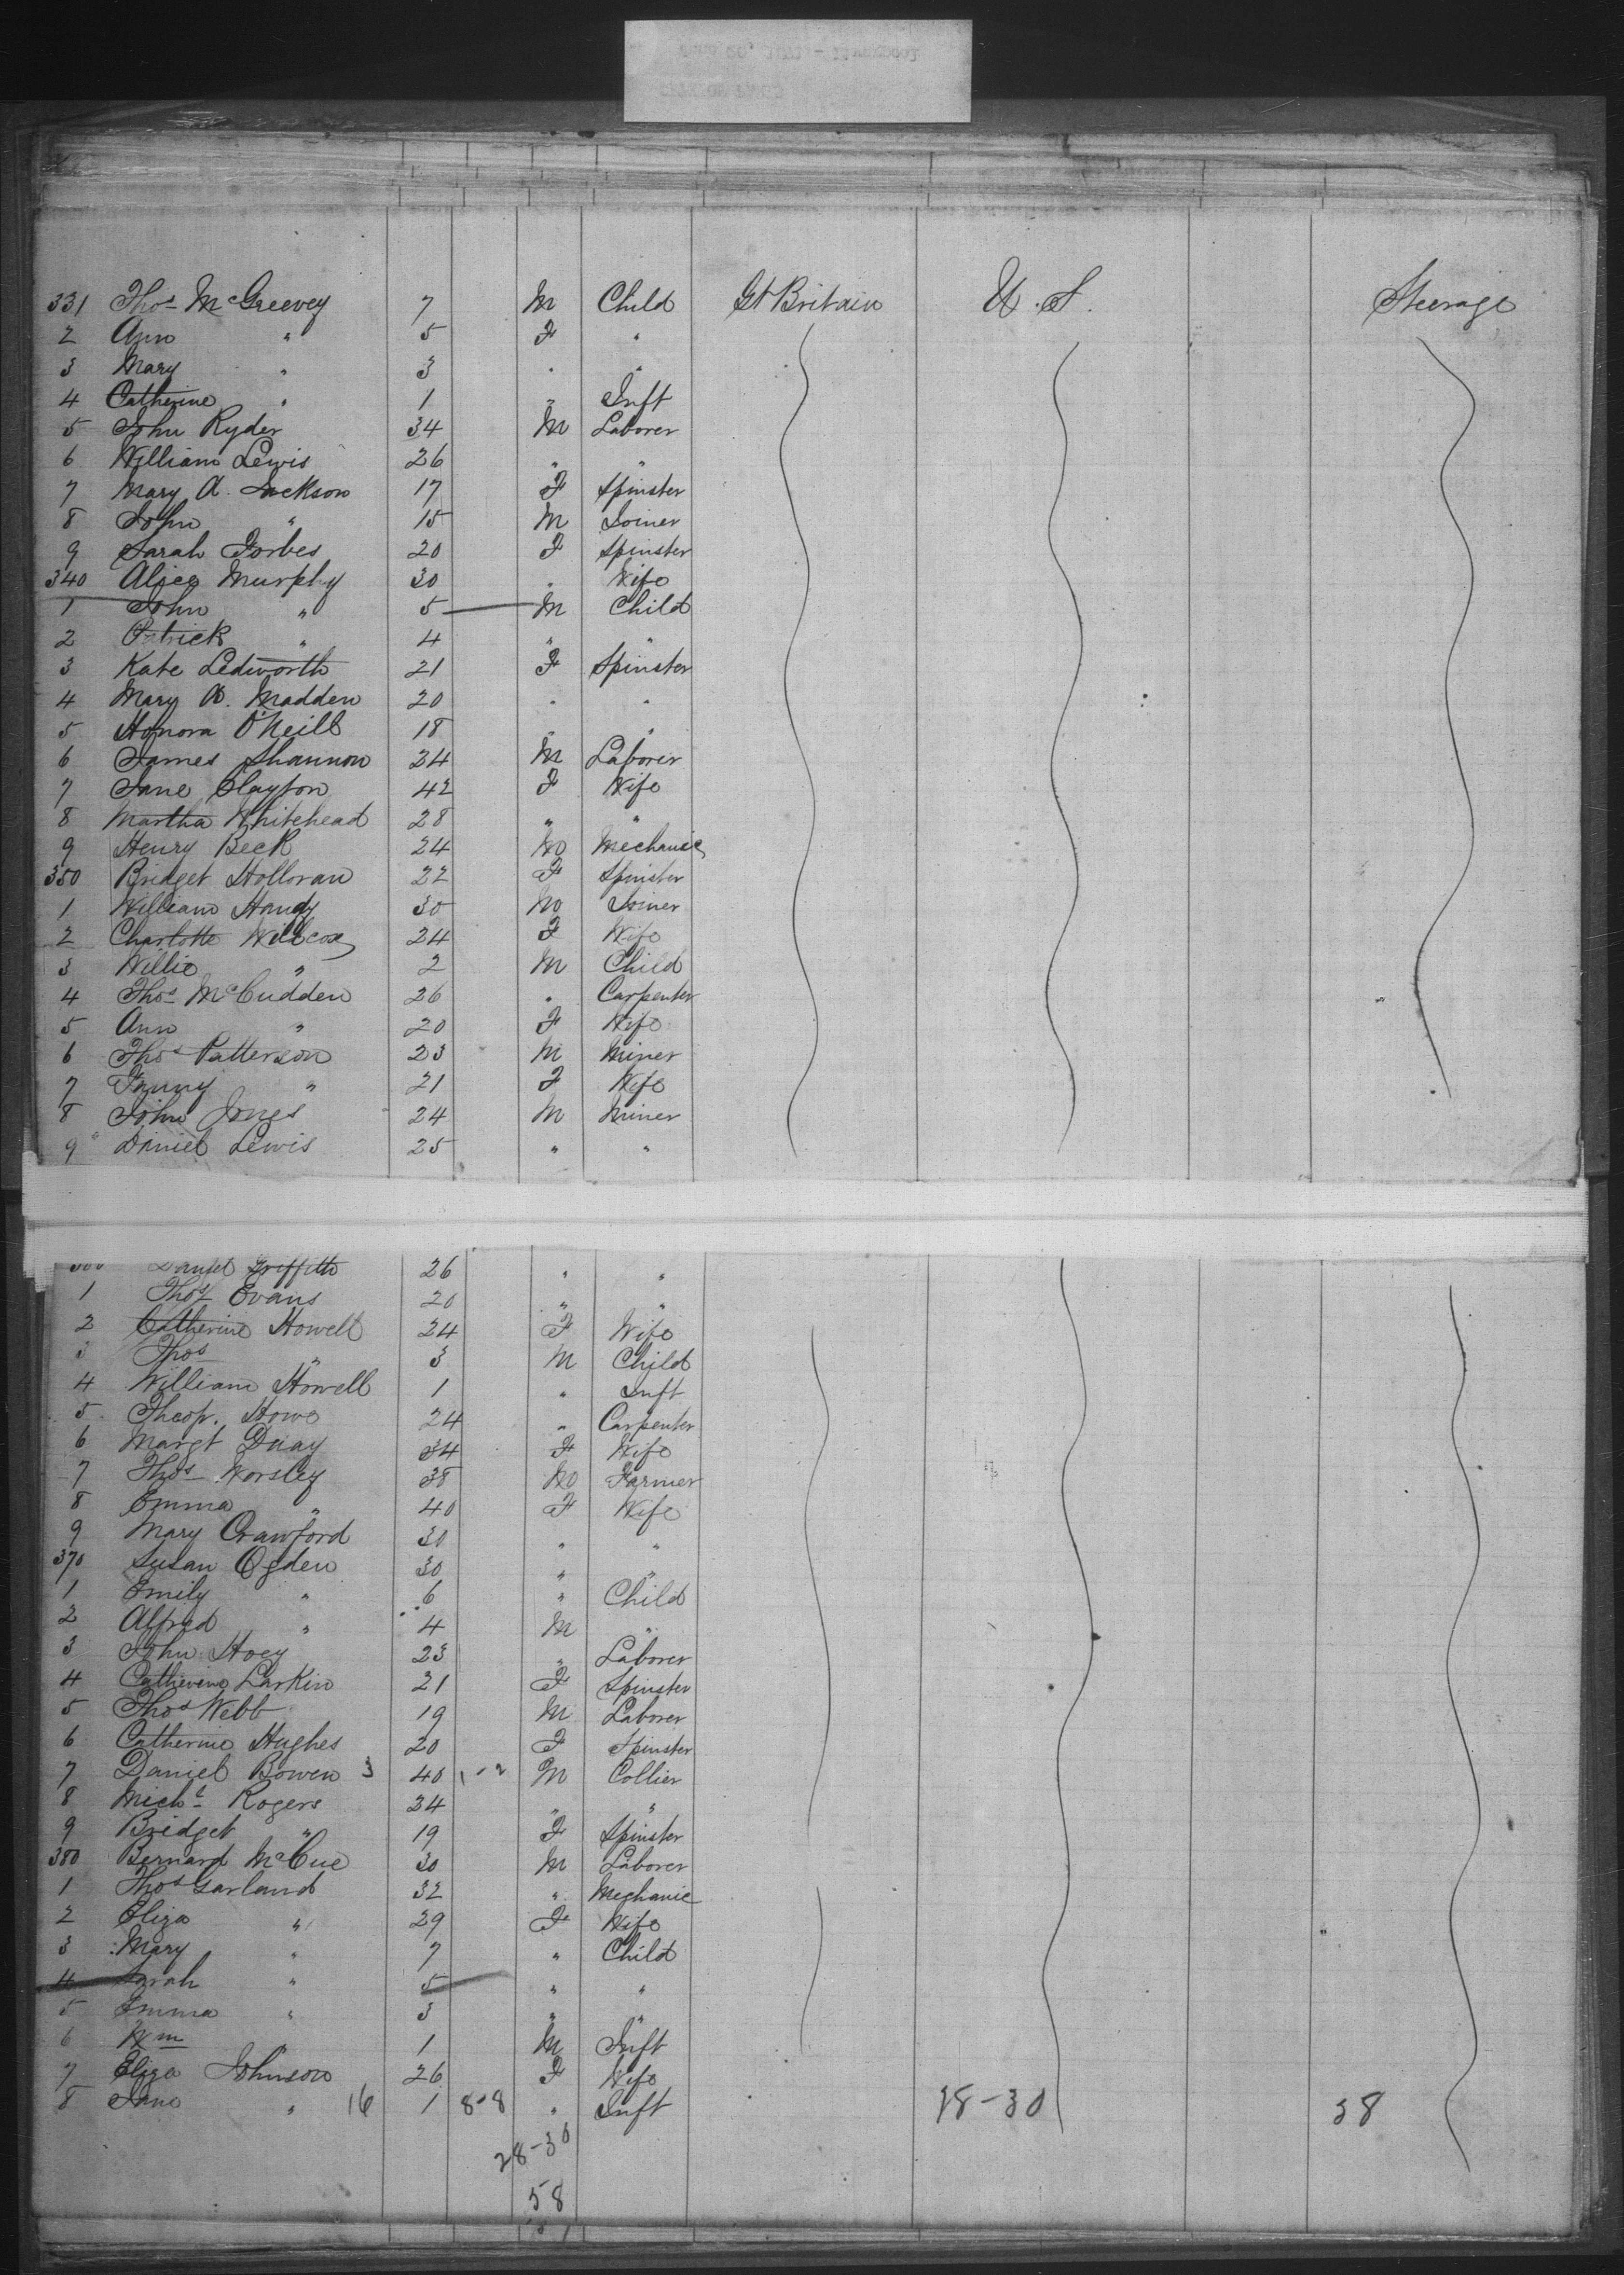 331 Thos McGreevey 7 M Child Gt Britain U.S. Steerage
2 Ann " 5 F "
3 Mary " 3 " "
4 Catherine " 1 " Inft
5 John Ryder 34 M Laborer
6 William Lewis 26 " "
7 Mary A. Jackson 17 F Spinster
8 John " 15 M Joiner
9 Sarah Forbes 20 F Spinster
340 Alice Murphy 30 " Wife
1 John " 5 M Child
2 Patrick " 4 " "
3 Kate Ledworth 21 F Spinster
4 Mary A. Madden 20 " "
5 Honora O'Neill 18 " "
6 James Shannon 24 M Laborer
7 Jane Clayton 42 F Wife
8 Martha Whitehead 28 " "
9 Henry Beck 24 M Mechanic
350 Bridget Holloran 22 F Spinster
1 William Handy 30 M Joiner
2 Charlotte Willcox 24 F Wife
3 Willie " 2 M Child
4 Thos McCudden 26 " Carpenter
5 Ann " 20 F Wife
6 Thos Patterson 23 M Miner
7 Fanny " 21 F Wife
8 John Jones 24 M Miner
9 Daniel Lewis 25 " "
360 Daniel Griffith 26 " "
1 Thos Evans 20 " "
2 Catherine Howell 24 F Wife
3 Thos " 3 M Child
4 William Howell 1 " Inft
5 Theop. Howe 24 " Carpenter
6 Margt Duay 34 F Wife
7 Thos Worsley 38 M Farmer
8 Emma " 40 F Wife
9 Mary Crawford 30 " "
370 Susan Ogden 30 " "
1 Emily " 6 " Child
2 Alfred " 4 M "
3 John Hoey 23 " Laborer
4 Catherine Larkin 21 F Spinster
5 Thos Webb 19 M Laborer
6 Catherine Hughes 20 F Spinster
7 Daniel Bowen 3 40 1-2 M Collier
8 Michl Rogers 24 " "
9 Bridget " 19 F Spinster
380 Bernard McCue 30 M Laborer
1 Thos Garland 32 " Mechanic
2 Eliza " 29 F Wife
3 Mary " 7 " Child
4 Sarah " 5 " "
5 Emma " 3 " "
6 Wm " 1 M Inft
7 Eliza Johnson 26 F Wife
8 Jane " 16 1 8-8 " Inft 28-30 58
28-30
58